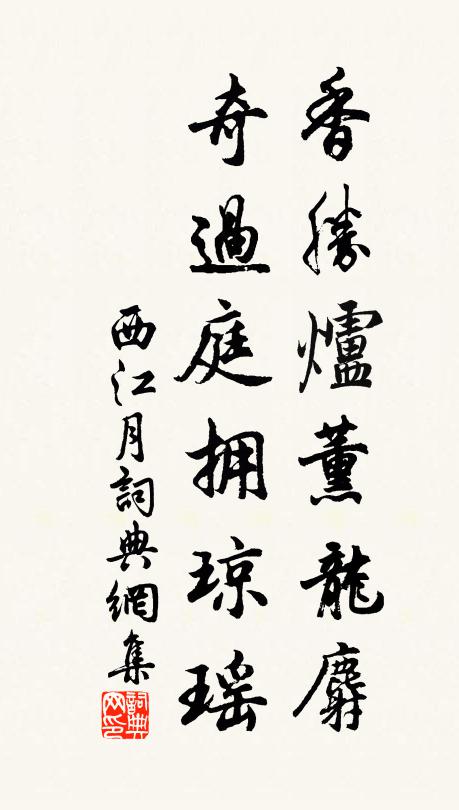 香勝爐薰龍麝
奇過庭拥琼瑶
西江月詞典網集
詞典网印